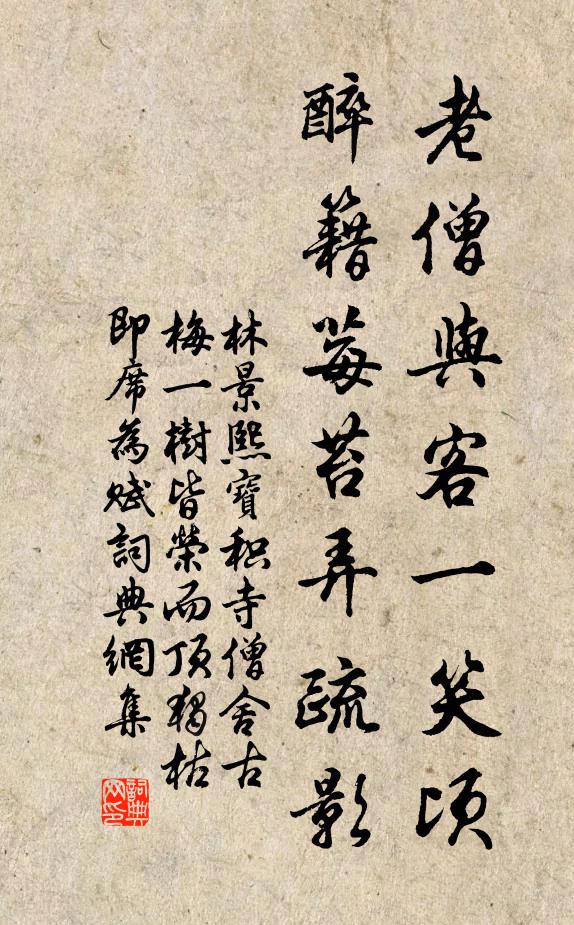 老僧與客一笑頃
醉籍莓苔弄疏影
林景熙寶积寺僧舍古
梅一樹皆榮而頂獨枯
即席為賦詞典網集
詞典網印